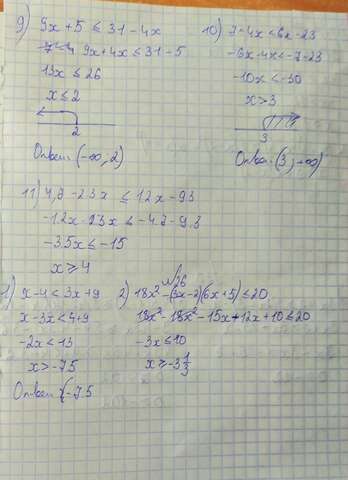 9) 9x + 5 ≤ 31 - 4x
9x + 4x ≤ 31 - 5
13x ≤ 26
x ≤ 2
2
Ответ: (-∞, 2)
10) 7 - 4x < 6x - 23
-6x - 4x < -7 - 23
-10x < -30
x > 3
3
Ответ: (3; +∞)
11) 4,2 - 2,3x ≤ 1,2x - 9,3
-1,2x - 2,3x ≤ -4,2 - 9,3
-3,5x ≤ -15
x ≥ 4
1) x - 4 < 3x + 9
x - 3x < 4 + 9
-2x < 13
x > -7,5
Ответ: (-7,5
№26
2) 18x² - (3x - 2)(6x + 5) ≤ 20
18x² - 18x² - 15x + 12x + 10 ≤ 20
-3x ≤ 10
x ≥ -3 1/3